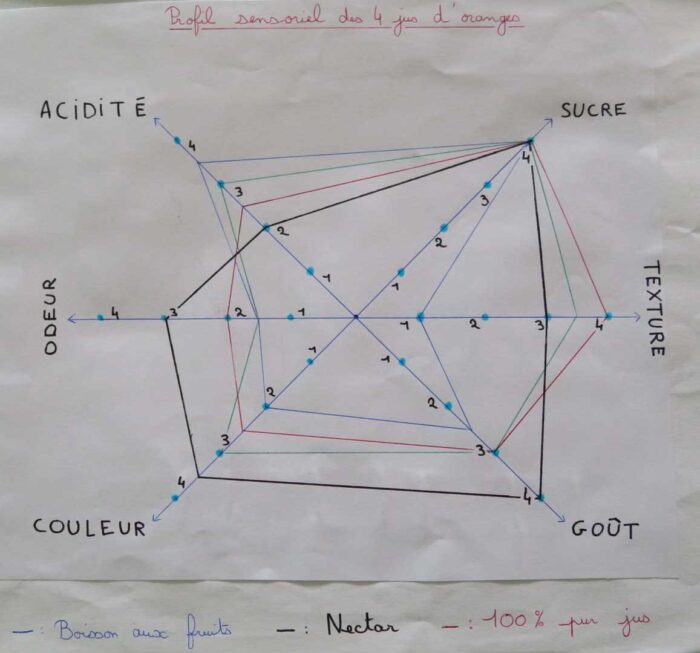 Profil sensoriel des 4 jus d'oranges
ACIDITÉ
SUCRE
4
4
3
3
2
2
1
1
ODEUR
4
3
2
1
1
2
3
4
TEXTURE
1
1
2
2
3
3
4
4
COULEUR
GOÛT
— : Boisson aux fruits — : Nectar — : 100% pur jus